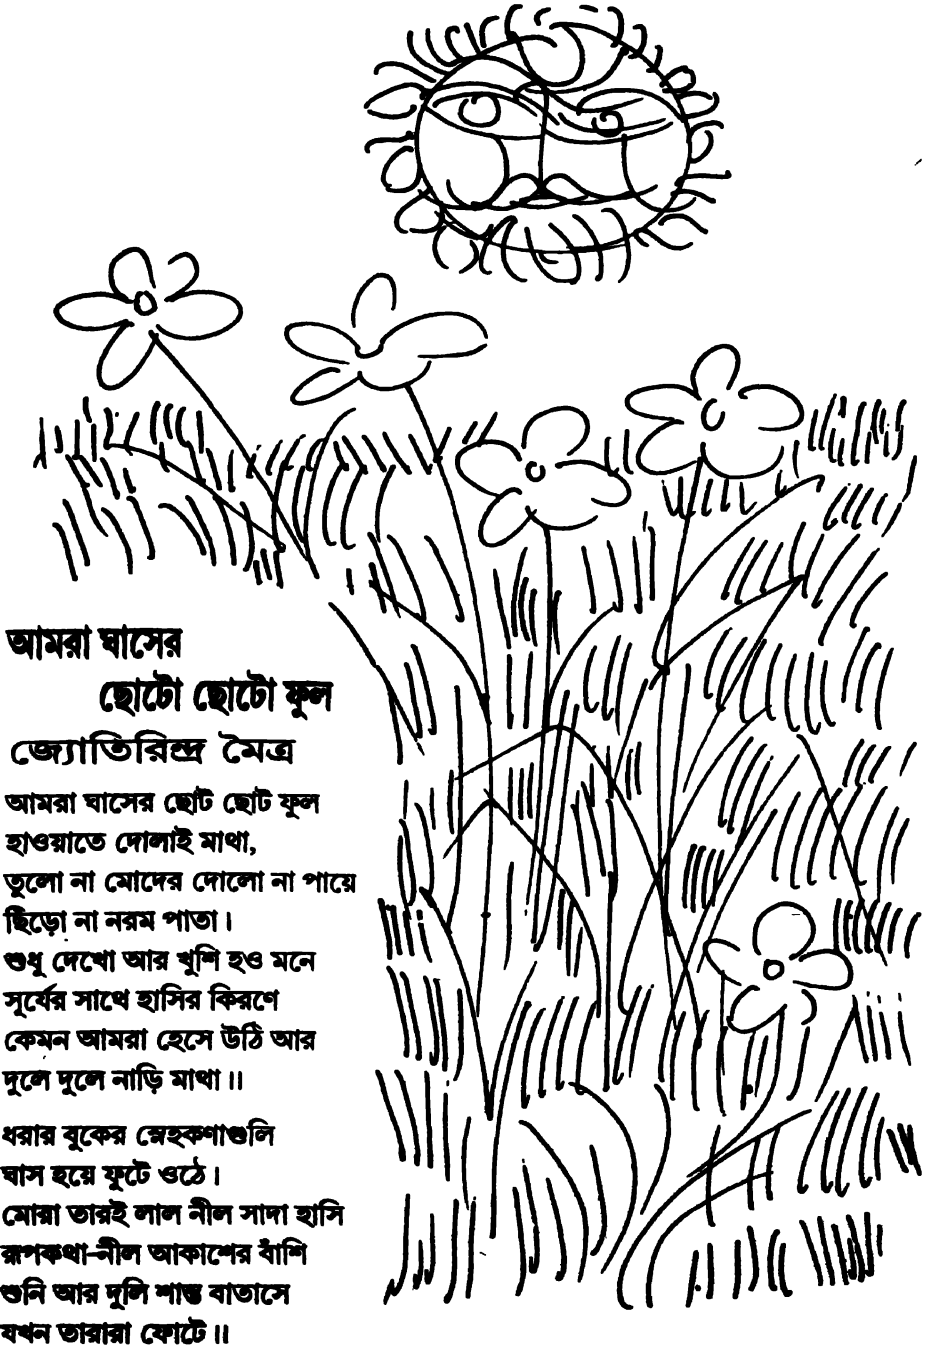 আমরা ঘাসের
ছোটো ছোটো ফুল
জ্যোতিরিন্দ্র মৈত্র
আমরা ঘাসের ছোট ছোট ফুল
হাওয়াতে দোলাই মাথা,
তুলো না মোদের দোলো না পায়ে
ছিঁড়ো না নরম পাতা।
শুধু দেখো আর খুশি হও মনে
সূর্যের সাথে হাসির কিরণে
কেমন আমরা হেসে উঠি আর
দুলে দুলে নাড়ি মাথা॥
ধরার বুকের স্নেহকণাগুলি
ঘাস হয়ে ফুটে ওঠে।
মোরা তারই লাল নীল সাদা হাসি
রূপকথা-নীল আকাশের বাঁশি
শুনি আর দুলি শান্ত বাতাসে
যখন তারারা ফোটে॥